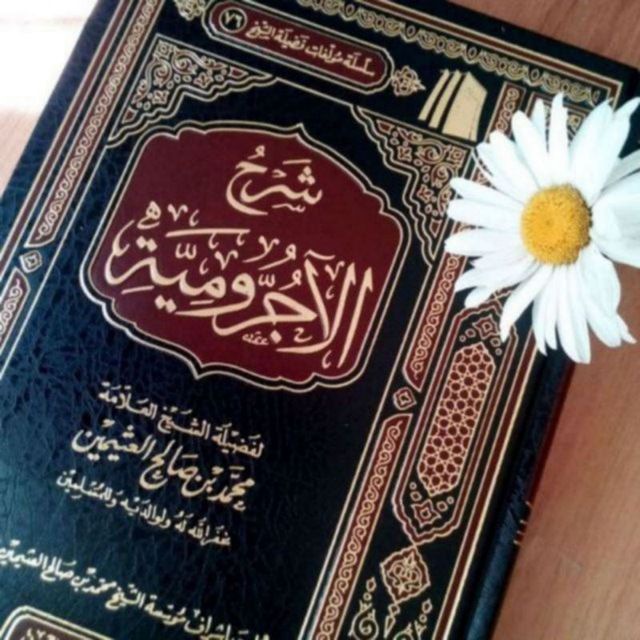 سلسلة مؤلفات فضيلة الشيخ ٧٦
شَرْحُ
الآجُرُّومِيَّةِ
لفضيلة الشيخ العلامة
محمد بن صالح العثيمين
غفر الله له ولوالديه وللمسلمين
مؤسسة الشيخ محمد بن صالح العثيمين